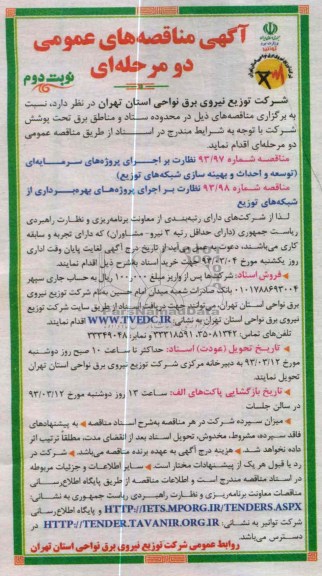 آگهی مناقصه‌های عمومی
دو مرحله‌ای
نوبت دوم
شرکت توزیع نیروی برق نواحی استان تهران در نظر دارد، نسبت
به برگزاری مناقصه‌های ذیل در محدوده ستاد و مناطق برق تحت پوشش
شرکت با توجه به شرایط مندرج در اسناد از طریق مناقصه عمومی
دو مرحله‌ای اقدام نماید.
مناقصه شماره ۹۳/۹۷ نظارت بر اجرای پروژه‌های سرمایه‌ای
(توسعه و احداث و بهینه سازی شبکه‌های توزیع)
مناقصه شماره ۹۳/۹۸ نظارت بر اجرای پروژه‌های بهره‌برداری از
شبکه‌های توزیع
لذا از شرکت‌های دارای رتبه‌بندی از معاونت برنامه‌ریزی و نظارت راهبردی
ریاست جمهوری (دارای حداقل رتبه ۳ نیرو- مشاوران) که دارای تجربه و سابقه
کاری می‌باشند، دعوت به عمل می‌آید از تاریخ درج آگهی لغایت پایان وقت اداری
روز یکشنبه مورخ ۹۳/۰۳/۰۴ جهت خرید اسناد بشرح ذیل اقدام نمایند.
فروش اسناد: شرکتها پس از واریز مبلغ ۱۰۰٬۰۰۰ ریال به حساب جاری سپهر
۰۱۰۱۷۸۸۶۹۳۰۰۴ بانک صادرات شعبه میدان امام حسین به‌نام شرکت توزیع نیروی
برق نواحی استان تهران، می‌توانند جهت دریافت اسناد از طریق سایت شرکت توزیع
نیروی برق نواحی استان تهران به نشانی: WWW.TVEDC.IR اقدام نمایند.
تلفن‌های تماس: ۳۵۰۸۱۳۴۲، ۳۳۳۱۸۵۹۱ و نمابر: ۳۳۳۴۹۰۴۸
تاریخ تحویل (عودت) اسناد: حداکثر تا ساعت ۱۰ صبح روز دوشنبه
مورخ ۹۳/۰۳/۱۲ به دبیرخانه مرکزی شرکت توزیع نیروی برق نواحی استان تهران
تحویل نمایند.
تاریخ بازگشایی پاکت‌های الف: ساعت ۱۳ روز دوشنبه مورخ ۹۳/۰۳/۱۲
در سالن جلسات
میزان سپرده شرکت در هر مناقصه به‌شرح اسناد مناقصه به پیشنهادهای
فاقد سپرده، مشروط، مخدوش، تحویل اسناد بعد از انقضای مدت، مطلقاً ترتیب اثر
داده نخواهد شد. هزینه درج آگهی به عهده برنده مناقصه می‌باشد شرکت در
رد یا قبول هر یک از پیشنهادات مختار است سایر اطلاعات و جزئیات مربوطه
در اسناد مناقصه مندرج است و اطلاعات مناقصه از طریق پایگاه اطلاع‌رسانی
مناقصات معاونت برنامه‌ریزی و نظارت راهبردی ریاست جمهوری به نشانی:
HTTP://IETS.MPORG.IR/TENDERS.ASPX و پایگاه اطلاع‌رسانی
شرکت توانیر به نشانی: HTTP://TENDER.TAVANIR.ORG.IR در
دسترس می‌باشد.
روابط عمومی شرکت توزیع نیروی برق نواحی استان تهران